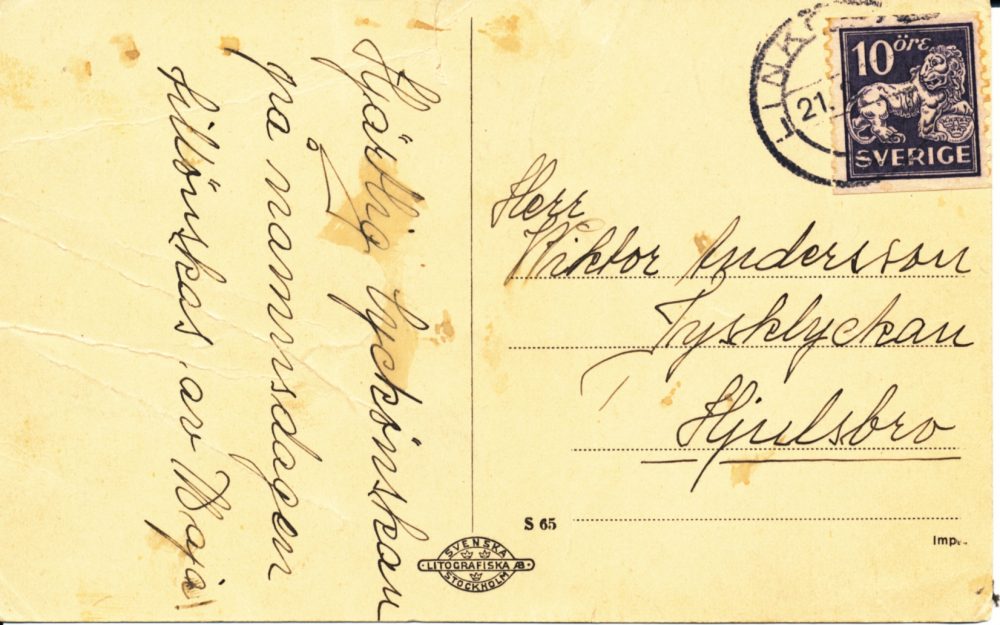 Hjärtlig lyckönskan
på namnsdagen
tillönskas av Maja!
10 öre
SVERIGE
LINKÖ
21.
Herr
Wiktor Andersson
Tysklyckan
Hjulsbro
S 65
SVENSKA
LITOGRAFISKA AB
STOCKHOLM
Imp.